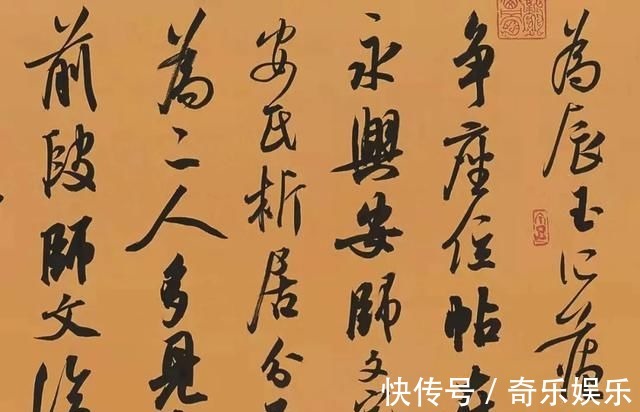 為辰玉
争座位帖
永興安師文
安氏析居分
為二人多見
前段師文
快传号 / 奇乐娱乐